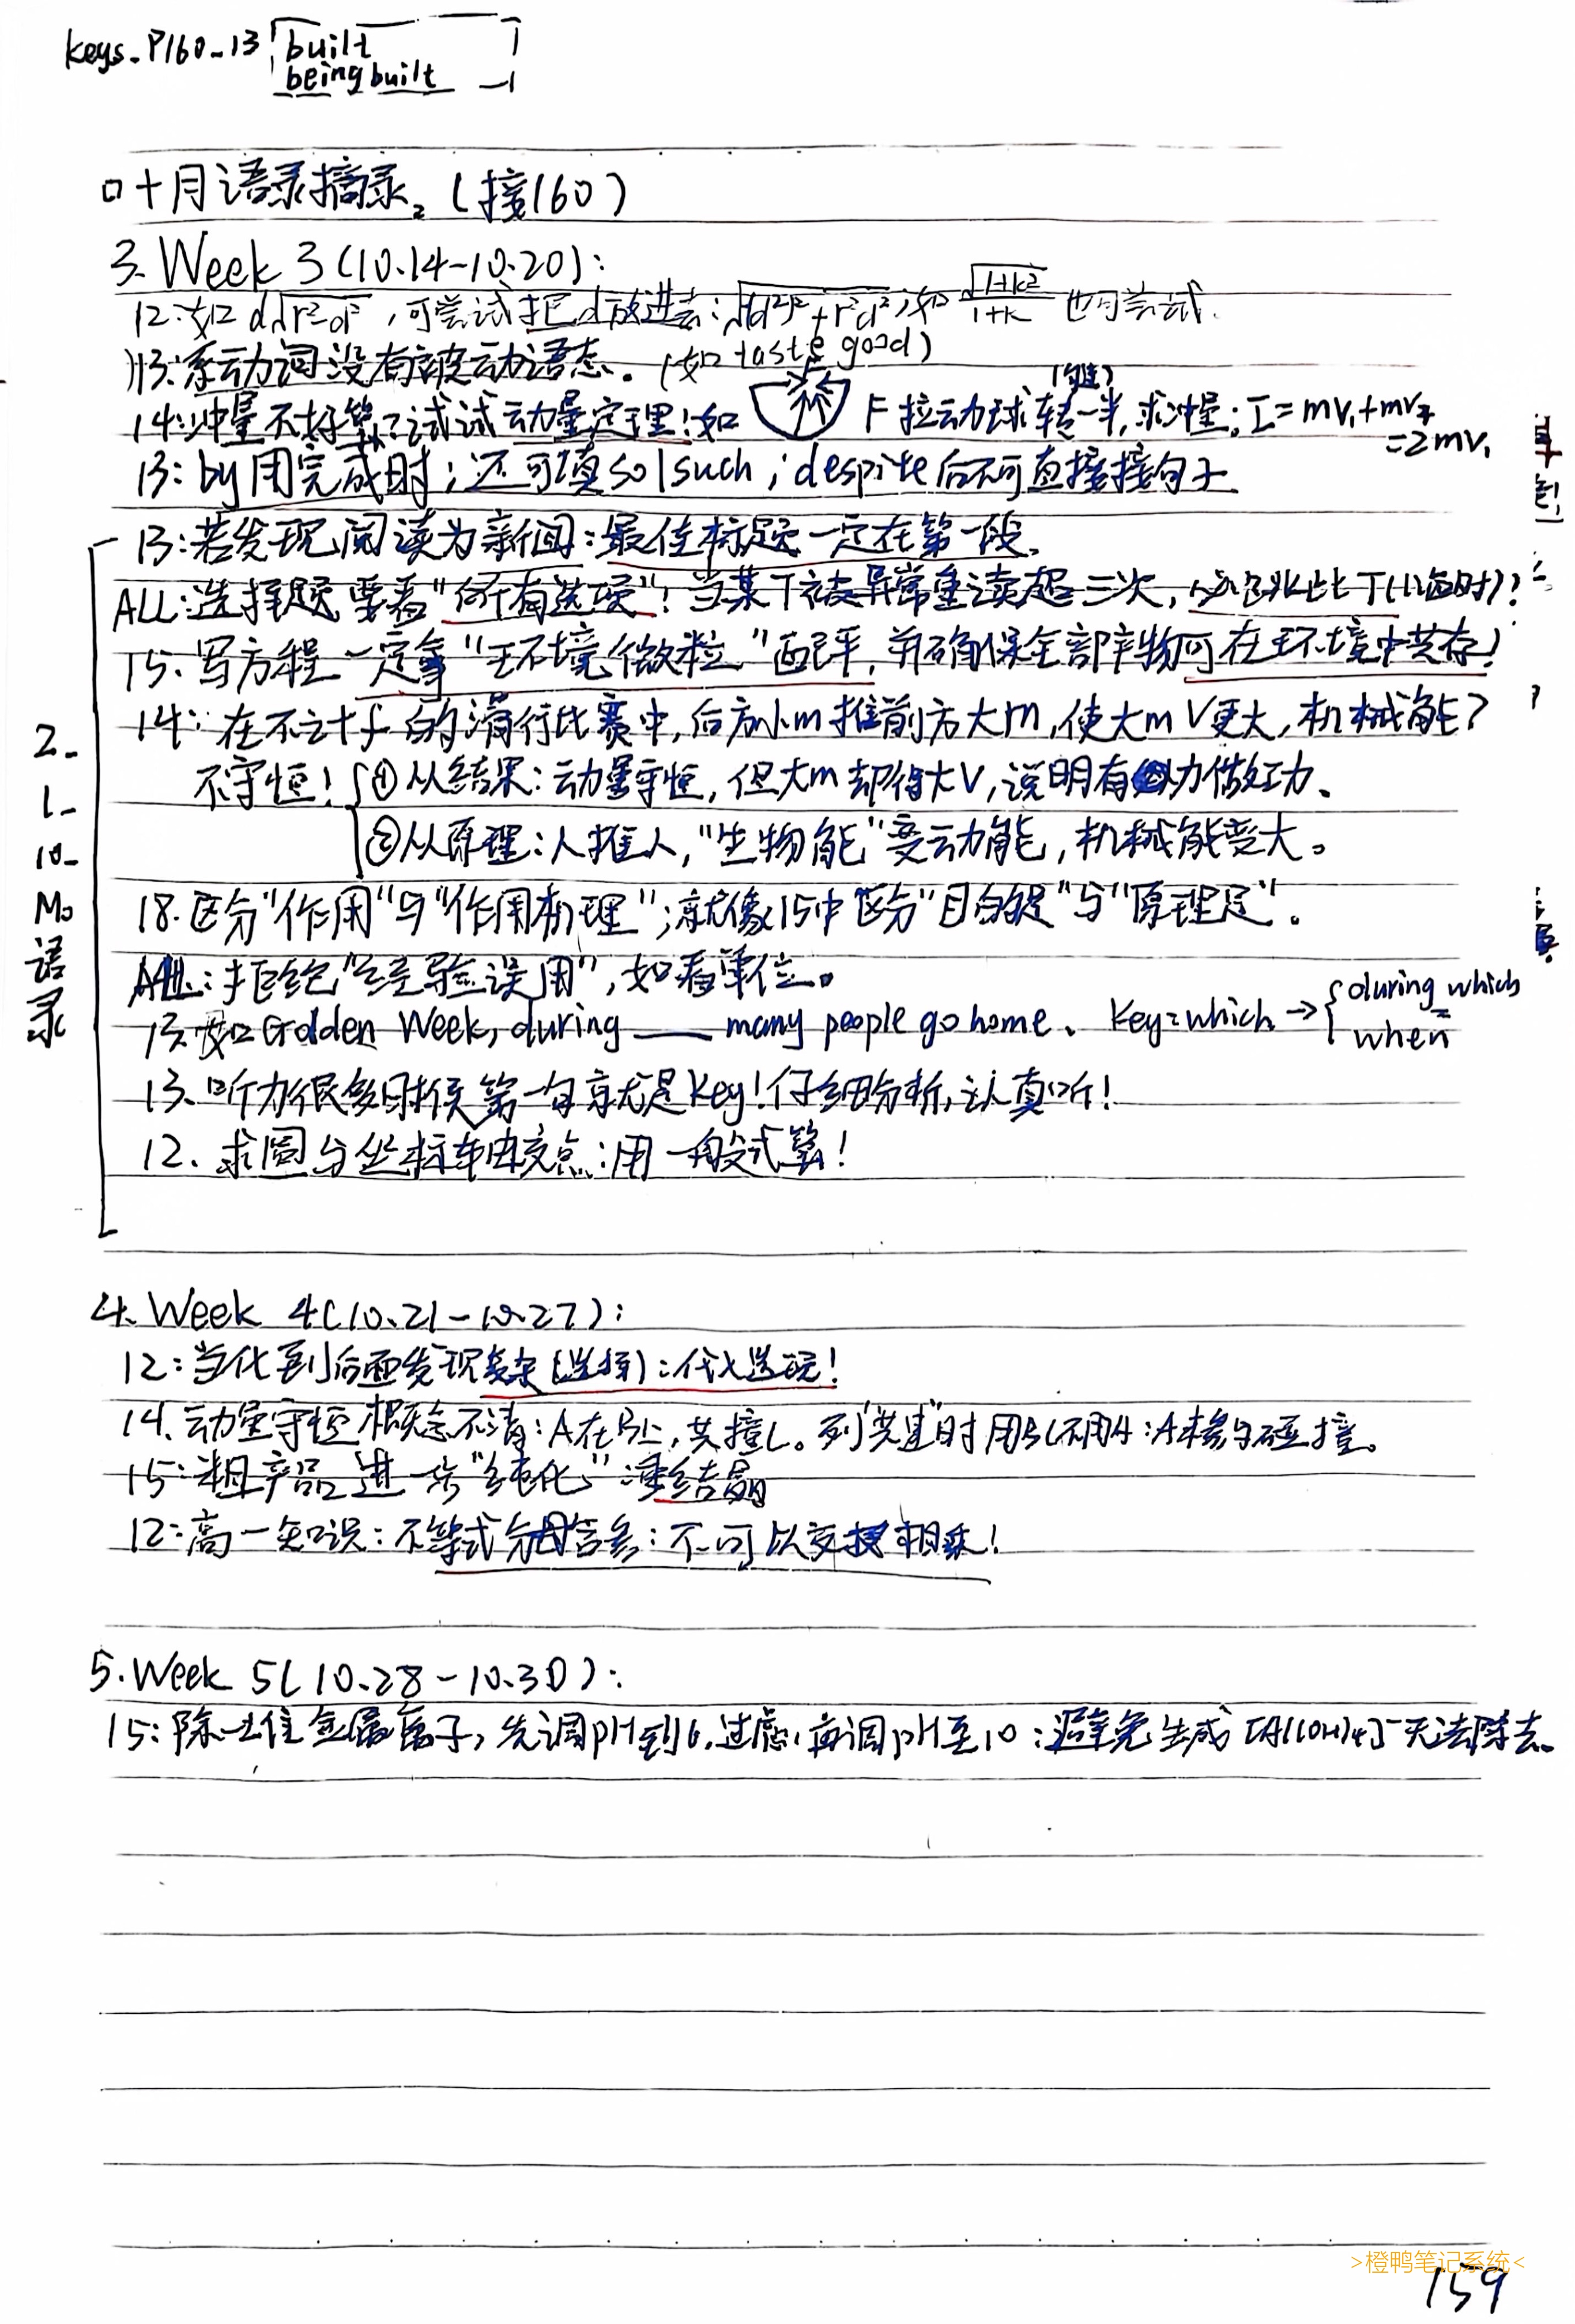 keys. P160-13 built
being built
口十月语录摘录2 (接160)
3. Week 3 (10.14-10.20):
12:如 d√r²-d², 可尝试把d放进去: √-(d²)²+r²d²; 如 √1+k² / 1+k 也可尝试.
13:系动词没有被动语态. (如 taste good)
14:冲量不好算?试试动量定理!如 F拉动球转一半,求冲量; I=mv₁+mv₂
=2mv₁
13: by用完成时;还可填so/such; despite后不可直接接句子
13:若发现阅读为新闻:最佳标题一定在第一段.
ALL:选择题要看"所有选项"!当某T被异常重读超三次,
15.写方程一定拿"环境微粒"配平,并确保全部产物可在环境中共存!
14:在不计f的滑行比赛中,后方小m推前方大m,使大m V更大,机械能?
不守恒! ①从结果:动量守恒,但大m却得大V,说明有力做功.
②从原理:人推人,"生物能"变动能,机械能变大。
18.区分"作用"与"作用机理";就像15中区分"目的是"与"原理是".
2-1-10-Mo语录
ALL:拒绝"经验误用",如看单位。
13.如 Golden Week, during ___ many people go home. Key=which → during which
= when
13.听力很多时候第一句就是Key!仔细分析,认真听!
12.求圆与坐标轴交点:用一般式算!
4. Week 4(10.21-10.27):
12:当化到后面发现复杂(选择):代入选项!
14.动量守恒概念不清:A在B上,共撞C。列"共速"时用BC不用A:A未参与碰撞。
15:粗产品进一步"纯化":重结晶
12:高一知识:不等式分母含参:不可以交叉相乘!
5. Week 5(10.28-10.30):
15:除去住金属离子,先调pH到6,过滤,再调pH至10:避免生成[Al(OH)4]⁻无法除去.
>橙鸭笔记系统<
159